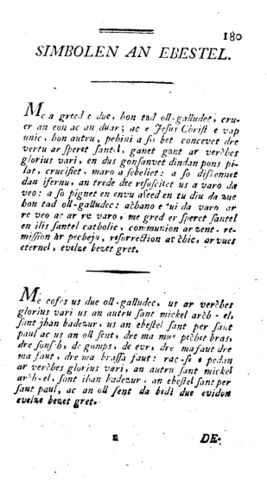 180
SIMBOLEN AN EBESTEL.
Me a greed e due, hon tad oll-galludec, cru-
er an eon ac an duar; ac e Jesus Christ e vap
unic, hon autru, pehini a so bet concevet dre
vertu ar speret santel, ganet gant ar verhès
glorius vari, en dus gonsanvet dindan pons pi-
lat, crucifiet, maro a sebeliet: a so disquennet
dan ifernu, an trede dee resuscitet us a varo da
veo: a so pignet en euvu aseed en tu diu da zue
hon tad oll-galludec: achano e tui da varo ar
re veo ac ar re varo, me gred er speret santel
en ilis santel catholic, communion arzent. re-
mission ar pechejo, resorrection ar chic, ar vues
eternel, evelze bezet gret.
Me cofes us due oll-galludec, us ar verhès
glorius vari us an autru sant mickel arch-el,
sant jhan badezur, us an ebestel sant per sant
paul ac us an oll sent, dre ma mus pechet bras,
dre sonsh, de gomps, de evr, dre ma faut dre
ma faut, dre ma brassa faut: rac-se e pedan
ar verhès glorius vari, an autru sant mickel
arh-el, sant ihan badezur, an ebestel sant per
sant paul, ac an oll sent da bidi due evidon
evelze bezet gret.
DE-